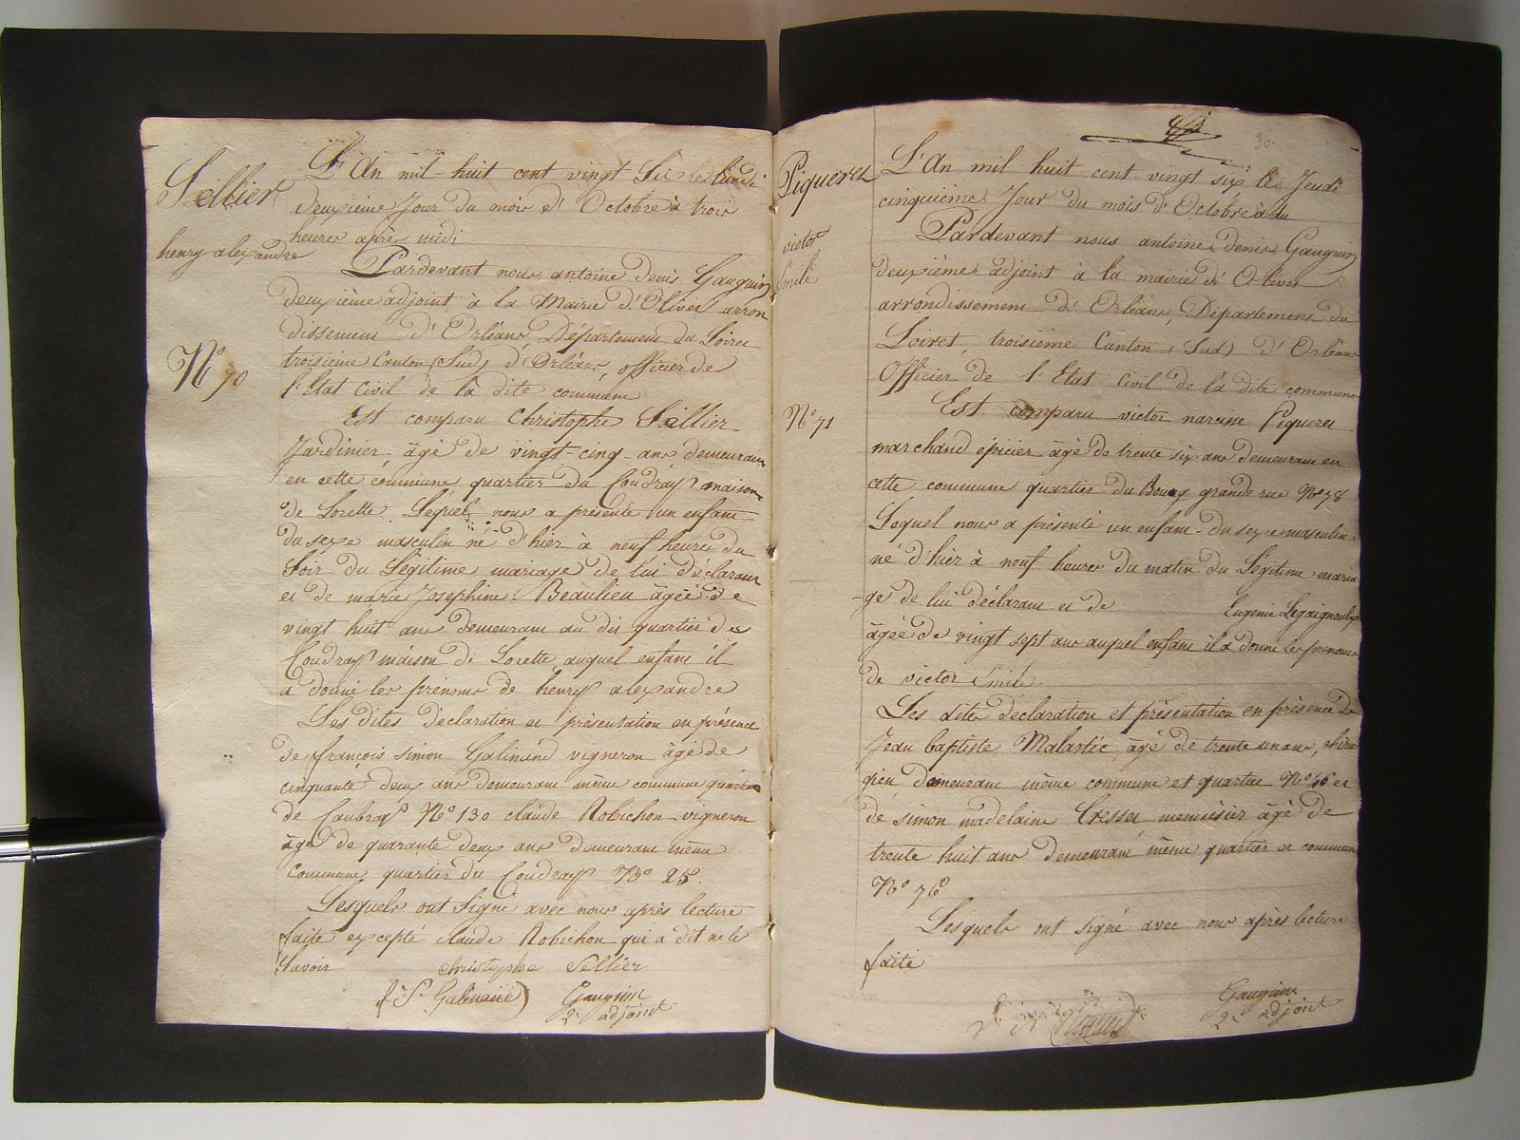 Sellier
henry alexandre
N° 70
L'An mil huit cent vingt Six le lundi
deuxième Jour du mois d'Octobre à trois
heures après midi
Pardevant nous antoine Denis Gauguin
deuxième adjoint à la Mairie d'Olivet arron
dissement d'Orléans Département du Loiret
troisième Canton (Sud) d'Orléans, officier de
l'Etat Civil de la dite commune
Est comparu Christophe Sellier
Jardinier âgé de vingt-cinq ans demeurant
en cette commune quartier du Coudray maison
de Lorette Lequel nous a présenté un enfant
du sexe masculin né d'hier à neuf heures du
Soir du Légitime mariage de lui déclarant
et de marie Josephine Beaulieu âgée de
vingt huit ans demeurant au dit quartier du
Coudray maison de Lorette auquel enfant il
a donné les prénoms de henry alexandre
Les dites déclaration et présentation en présence
de françois simon Galinand vigneron âgé de
cinquante deux ans demeurant même commune quartier
de Caubray N° 130 claude Robichon vigneron
âgé de quarante deux ans demeurant même
Commune quartier du Coudray N°
Lesquels ont Signé avec nous après lecture
faite excepté claude Robichon qui a dit ne le
Savoir christophe Sellier
f S Galinand Gauguin
2e adjoint
30
Pigueret
victor
Emile
N° 71
L'An mil huit cent vingt six le Jeudi
cinquième Jour du mois d'Octobre à
Pardevant nous antoine denis Gauguin
deuxième adjoint à la mairie d'Olivet
arrondissement d'Orléans, Département du
Loiret, troisième Canton (Sud) d'Orléans
Officier de l'Etat Civil de la dite commune
Est comparu victor narcisse Pigueret
marchand épicier âgé de trente six ans demeurant en
cette commune quartier du Bourg grande rue N° 78
Lequel nous a présenté un enfant du sexe masculin
né d'hier à neuf heures du matin du Légitime maria
ge de lui déclarant et de Eugenie
âgée de vingt sept ans auquel enfant il a donné les prénoms
de victor Emile
Les dites déclaration et présentation en présence de
Jean baptiste Malartic âgé de trente un ans, chirur
gien demeurant même commune et quartier N° et
de simon madelaine Cresser menuisier âgé de
trente huit ans demeurant même quartier et commune
N° 76
Lesquels ont signé avec nous après lecture
faite
Gauguin
2e adjoint